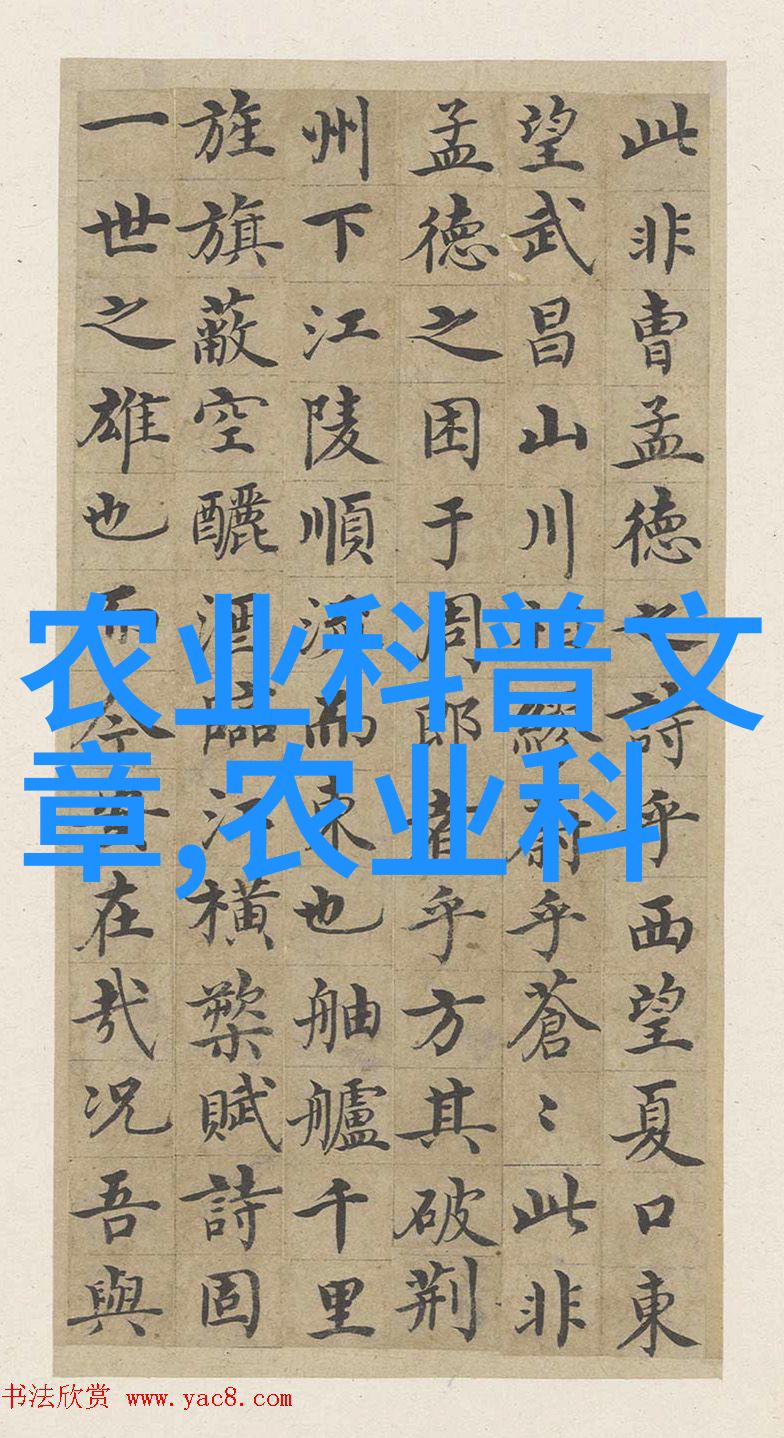 此非曹孟德之詩乎西望夏口東
望武昌山川相繆蔚乎蒼〻此非
孟德之困于周郎者乎方其破荆
州下江陵順流而東也舳艫千里
旌旗蔽空釃酒臨江横槊賦詩固
一世之雄也而今安在哉况吾與
农业科普文
章,农业科
书法欣赏 www.yac8.com